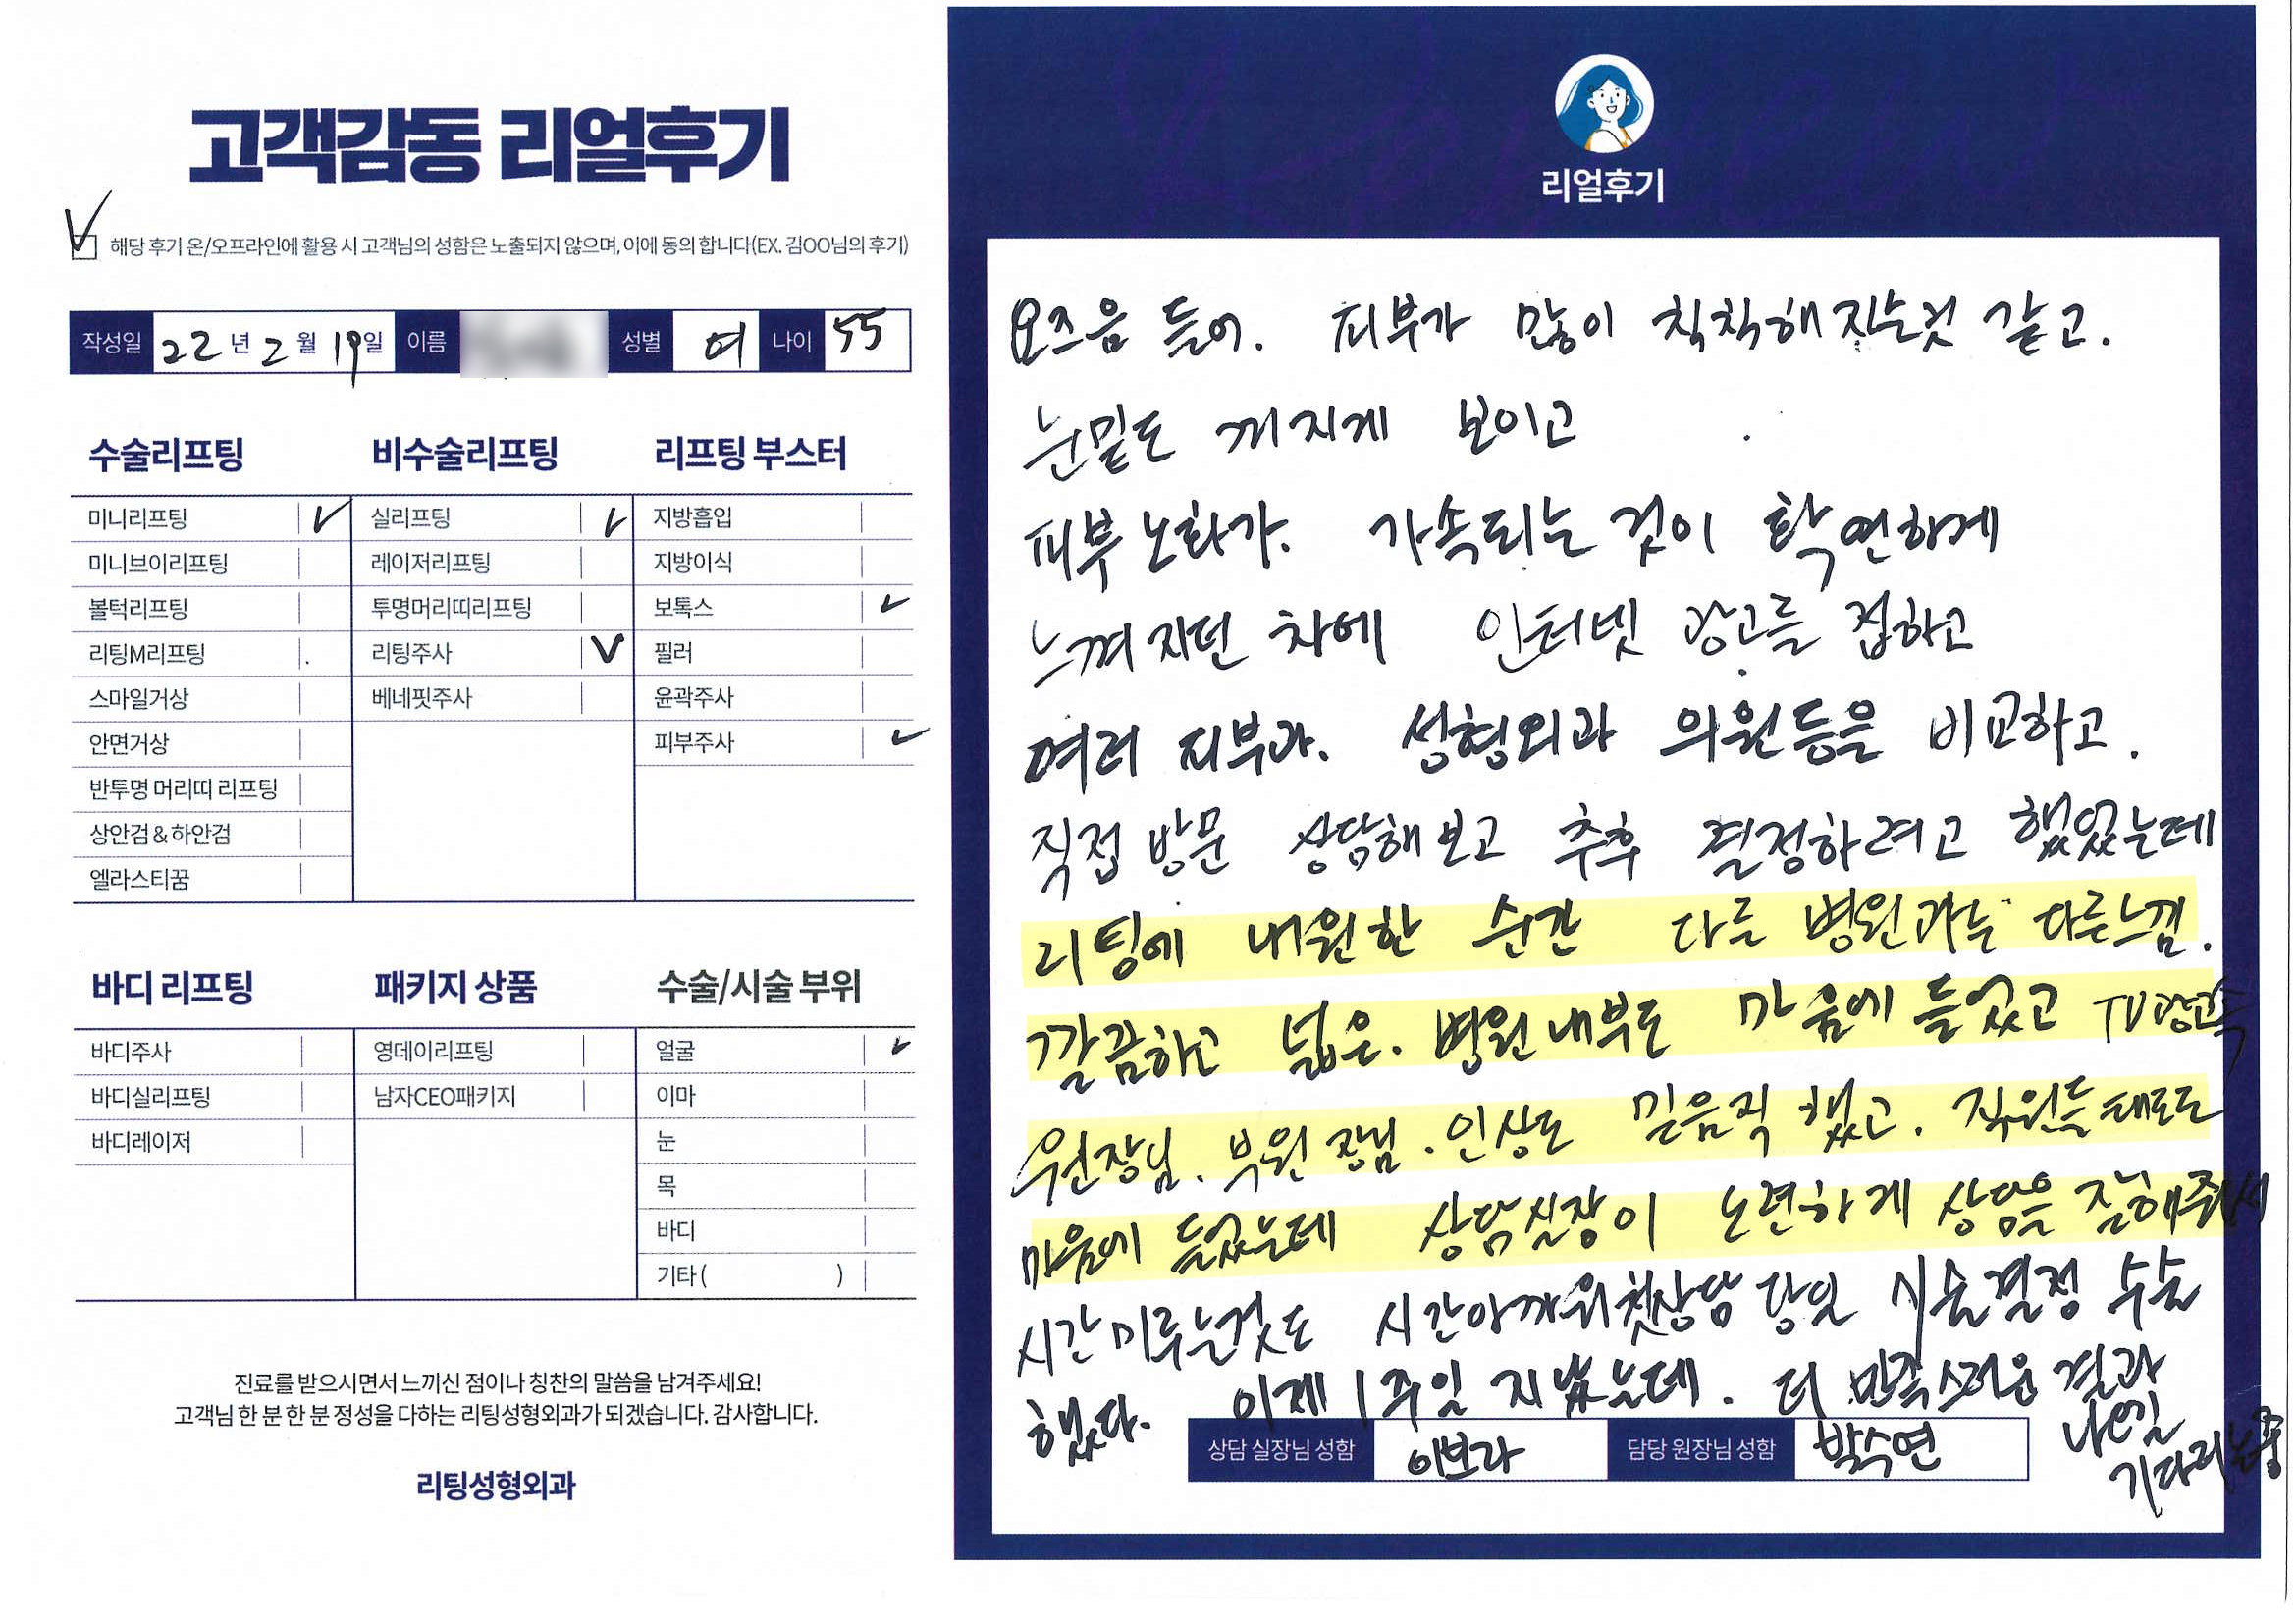 고객감동 리얼후기
해당 후기 온/오프라인에 활용 시 고객님의 성함은 노출되지 않으며, 이에 동의 합니다(EX. 김OO님의 후기)
작성일 22년 2월 19일 이름 성별 여 나이 55
수술리프팅
미니리프팅
미니브이리프팅
볼턱리프팅
리팅M리프팅
스마일거상
안면거상
반투명 머리띠 리프팅
상안검&하안검
엘라스티꿈
비수술리프팅
실리프팅
레이저리프팅
투명머리띠리프팅
리팅주사
베네핏주사
리프팅 부스터
지방흡입
지방이식
보톡스
필러
윤곽주사
피부주사
바디 리프팅
바디주사
바디실리프팅
바디레이저
패키지 상품
영데이리프팅
남자CEO패키지
수술/시술 부위
얼굴
이마
눈
목
바디
기타( )
진료를 받으시면서 느끼신 점이나 칭찬의 말씀을 남겨주세요!
고객님 한 분 한 분 정성을 다하는 리팅성형외과가 되겠습니다. 감사합니다.
리팅성형외과
리얼후기
요즈음 들어. 피부가 많이 칙칙해지는것 같고.
눈밑도 꺼지게 보이고
피부노화가. 가속되는 것이 확연하게
느껴지던 차에 인터넷 광고를 접하고
여러 피부과. 성형외과 의원등을 비교하고.
직접 방문 상담해보고 추후 결정하려고 했었는데
리팅에 내원한 순간 다른 병원과는 다른느낌.
깔끔하고 넓은. 병원내부도 마음에 들었고 TV광고속
원장님. 부원장님. 인상도 믿음직 했고. 직원들태도도
마음에 들었는데 상담실장이 노련하게 상담을 잘해줘서
시간미루는것도 시간아까워 첫상담 당일 시술결정 수술
했다. 이제 1주일 지났는데. 더 만족스러운 결과
나오길
기다리는중
상담 실장님 성함 이보라 담당 원장님 성함 박수연